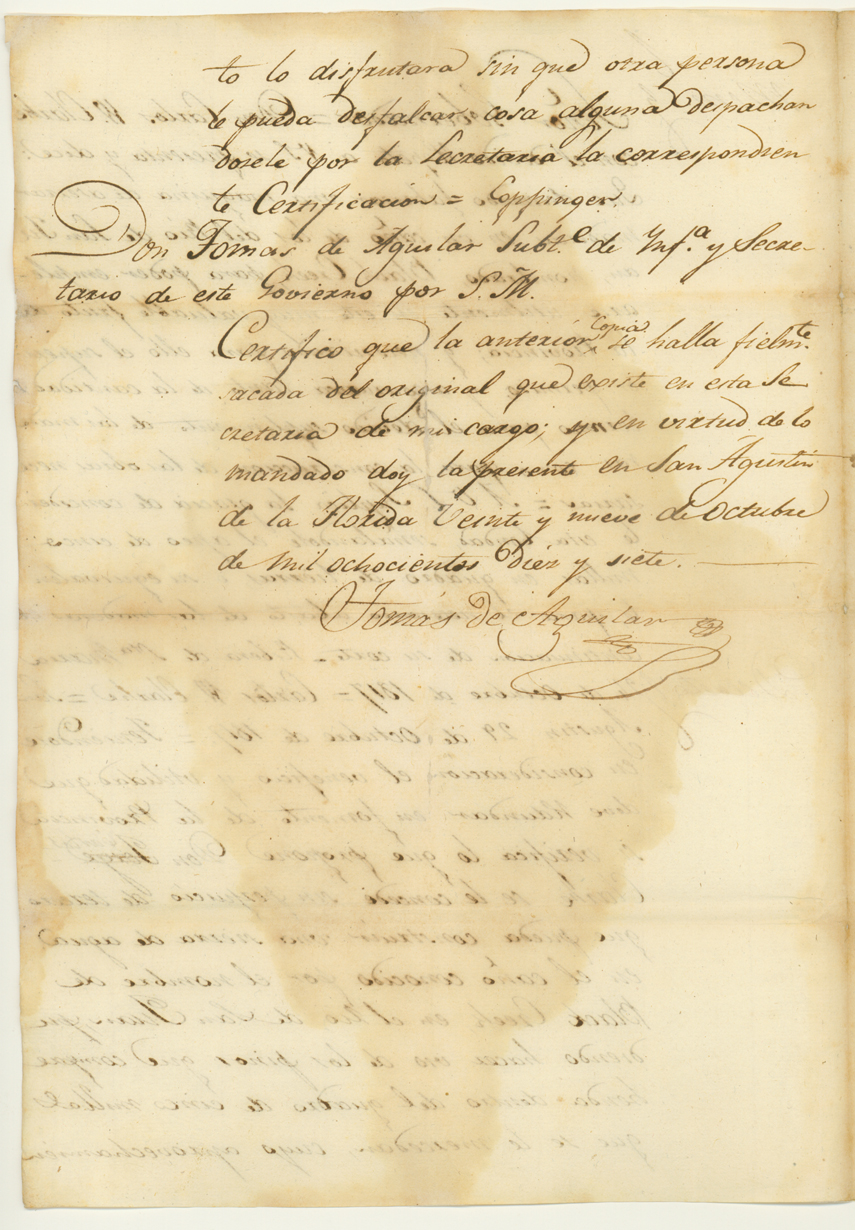 to lo disfrutara sin que otra persona
le pueda desfalcar cosa alguna despachan
dosele por la Secretaria la correspondien
te Certificacion = Coppinger.
Don Tomas de Aguilar Subt.e de Ynf.a y Secre-
tario de este Govierno por S. M.
Certifico que la anterior Copia se halla fielm.te
sacada del original que existe en esta Se
cretaria de mi cargo; y en virtud de lo
mandado doy la presente en San Agustin
de la Florida Veinte y nueve de Octubre
de mil ochocientos Diez y siete.
Tomás de Aguilar